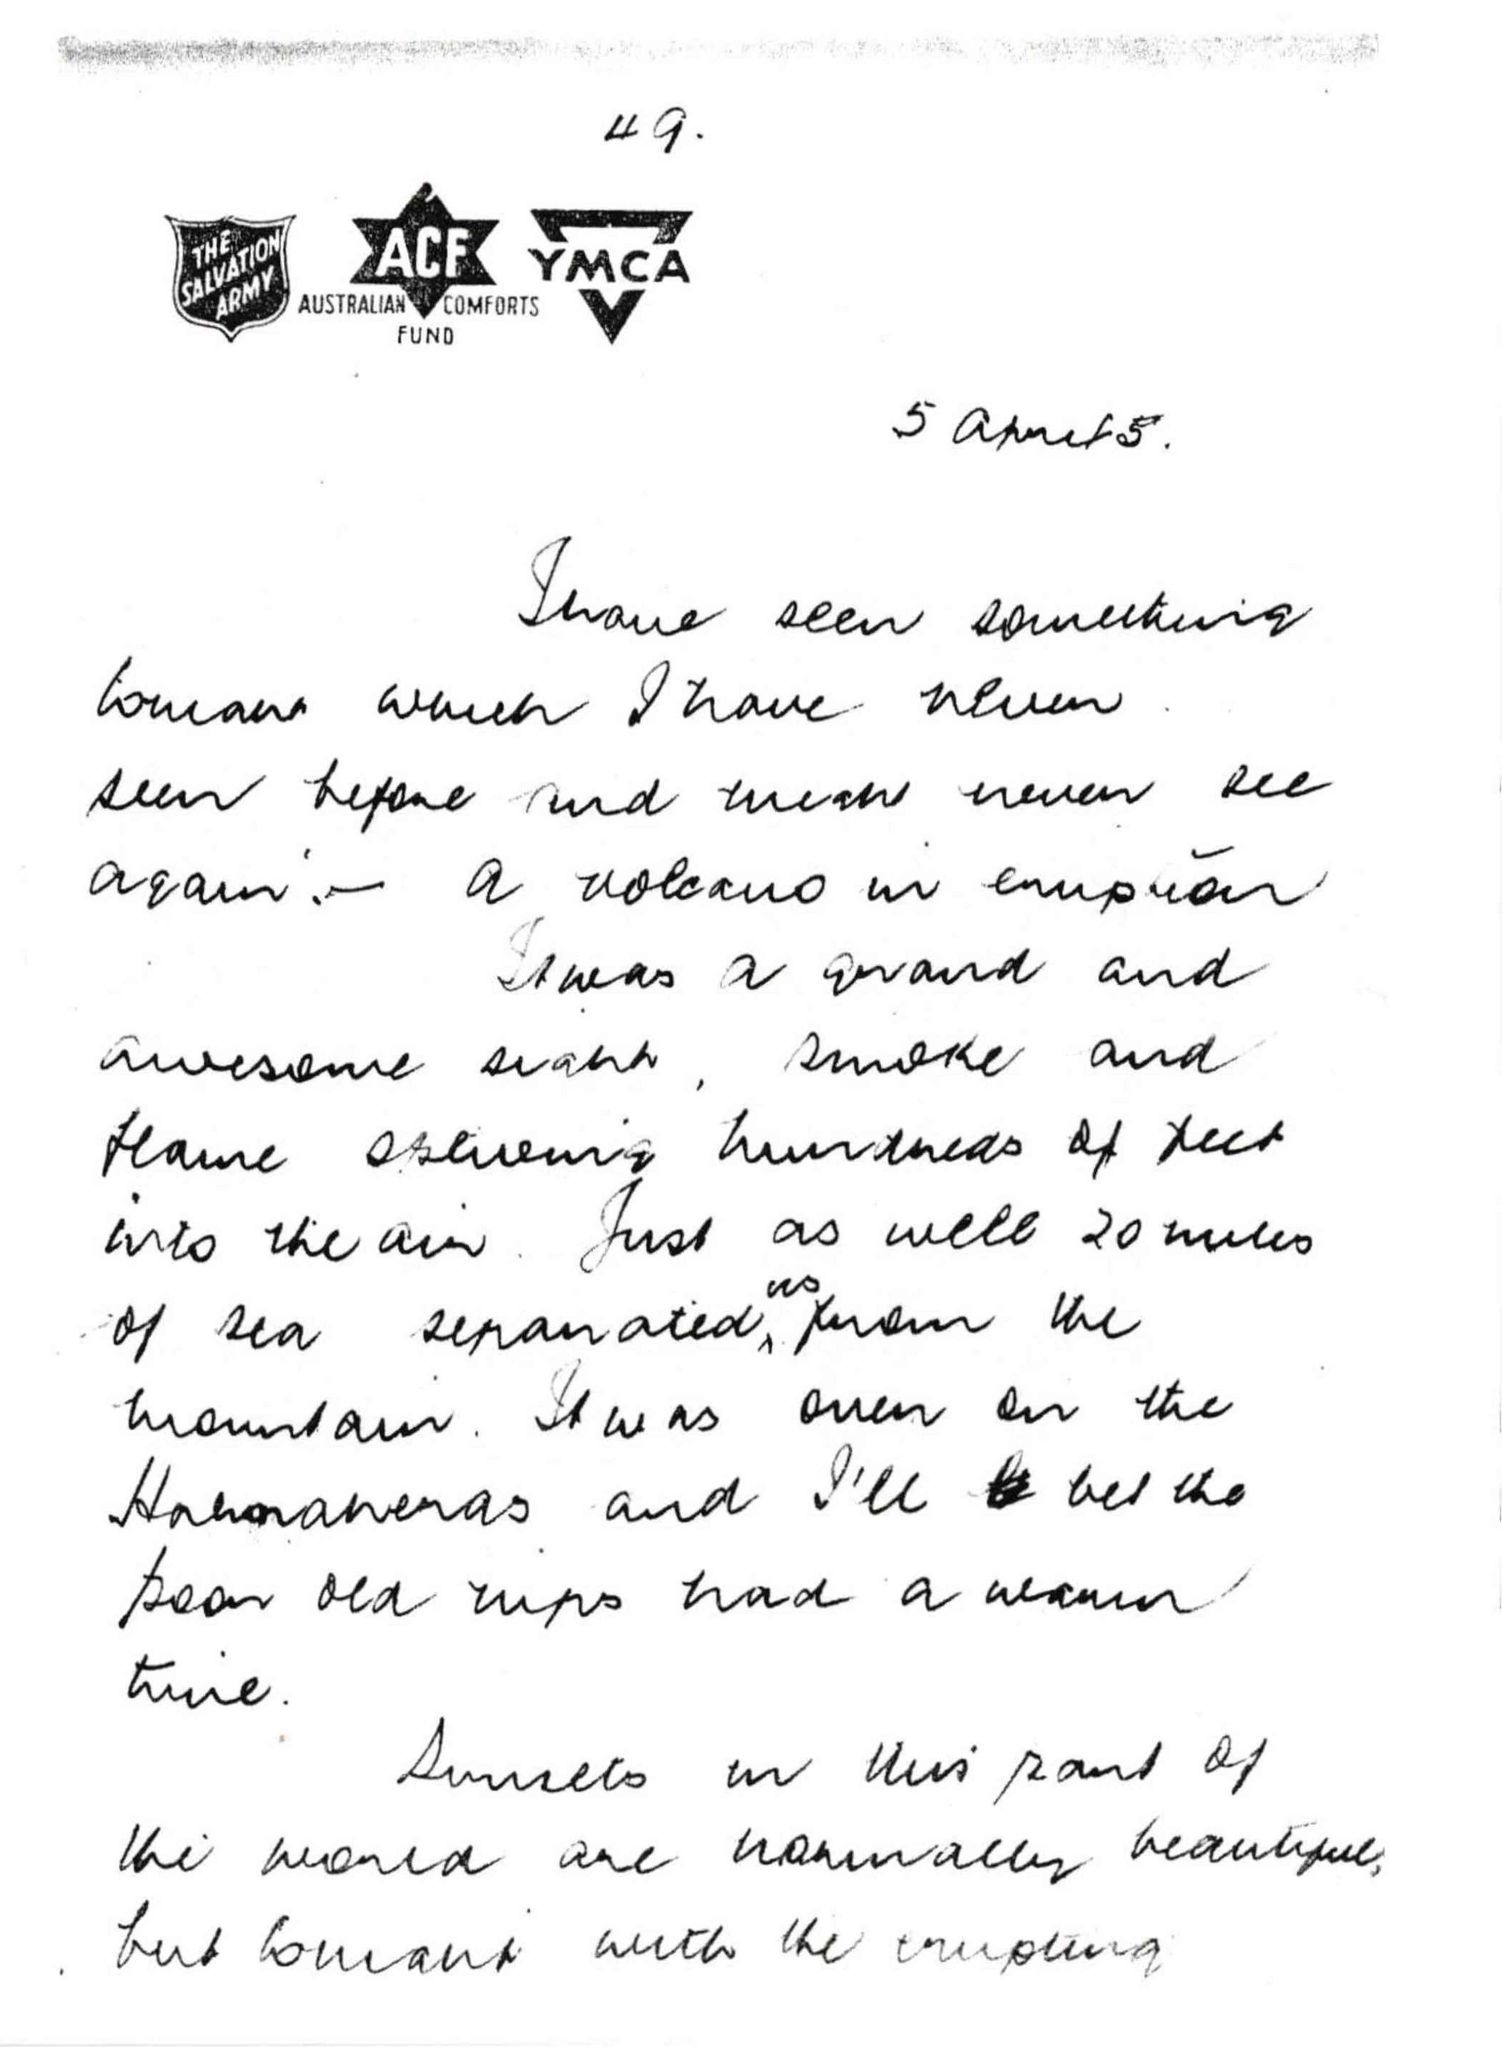 49.
THE
SALVATION
ARMY
ACF
AUSTRALIAN COMFORTS
FUND
YMCA
5 April 5.
I have seen something
tonight which I have never
seen before and might never see
again. — A volcano in eruption
It was a grand and
awesome sight, smoke and
flame spewing hundreds of feet
into the air. Just as well 20 miles
of sea separated us from the
mountain. It was over on the
Halmaheras and I'll bet the
poor old nips had a warm
time.
Sunsets in this part of
the world are normally beautiful,
but tonight with the erupting